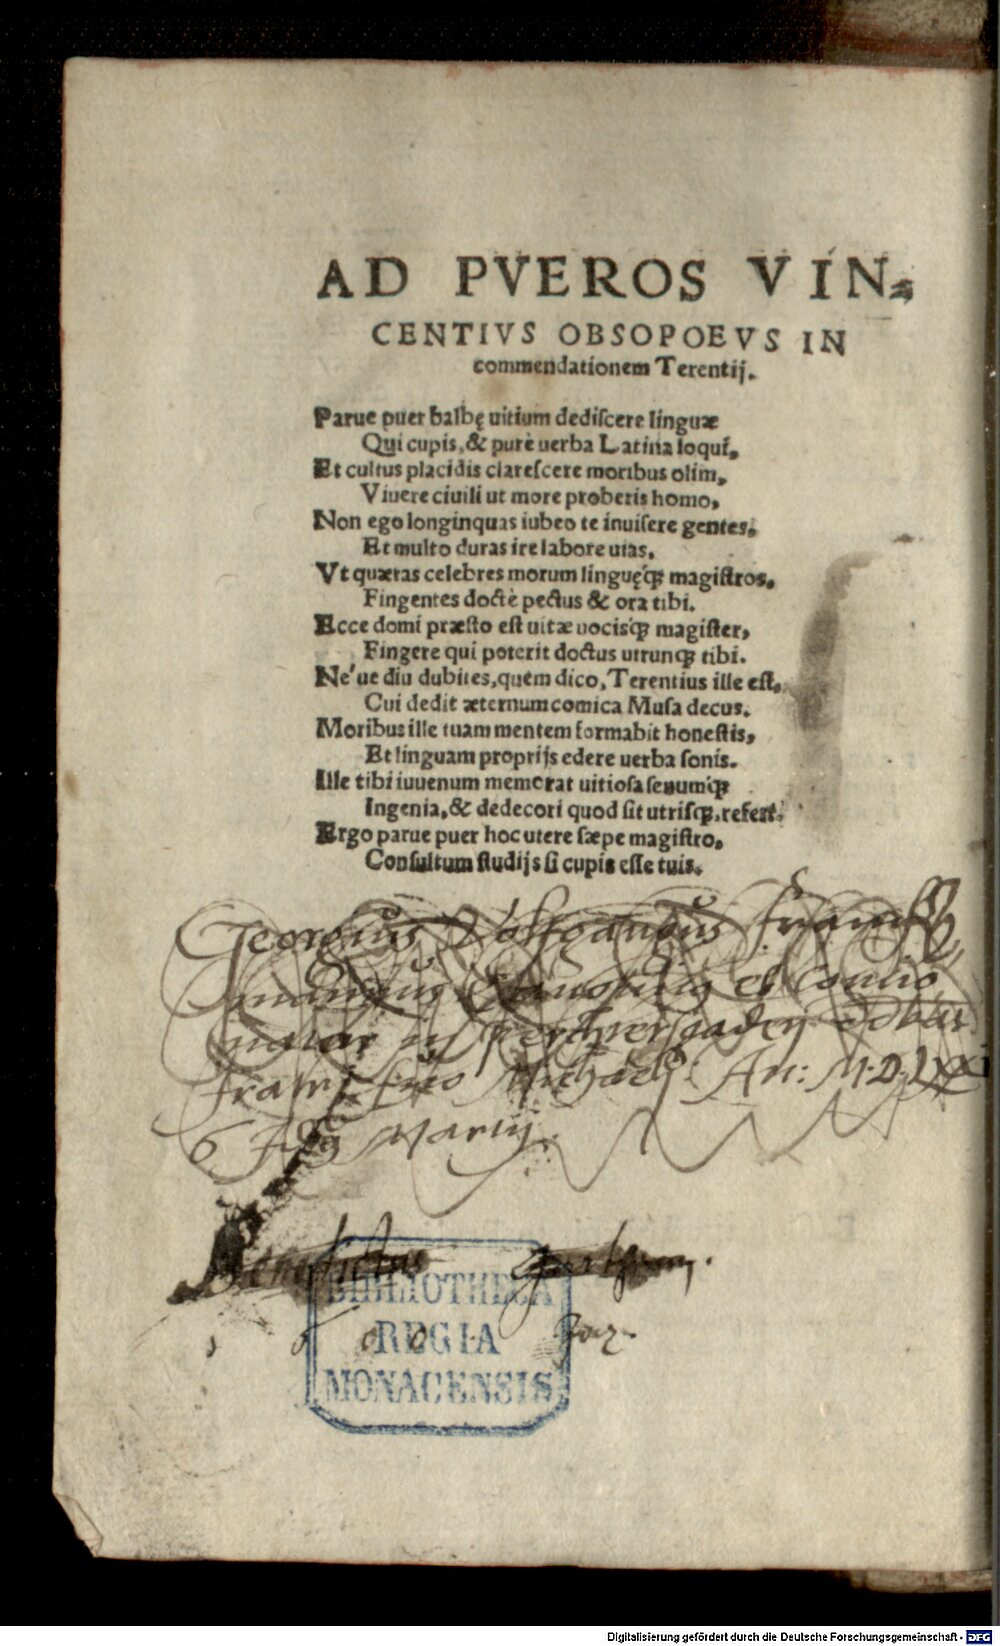 AD PVEROS VIN⸗
CENTIVS OBSOPOEVS IN
commendationem Terentij.
Parue puer balbę uitium dediſcere linguæ
Qui cupis, & purè uerba Latina loqui,
Et cultus placidis clareſcere moribus olim,
Viuere ciuili ut more proberis homo,
Non ego longinquas iubeo te inuiſere gentes,
Et multo duras ire labore uias.
Vt quæras celebres morum linguęq́ꝫ magiſtros,
Fingentes doctè pectus & ora tibi.
Ecce domi præſto eſt uitæ uocisq́ꝫ magiſter,
Fingere qui poterit doctus utrunqꝫ tibi.
Ne'ue diu dubites, quem dico, Terentius ille eſt,
Cui dedit æternum comica Muſa decus.
Moribus ille tuam mentem formabit honeſtis,
Et linguam proprijs edere uerba ſonis.
Ille tibi iuuenum memorat uitioſa ſenumq́ꝫ
Ingenia, & dedecori quod ſit utriſqꝫ, refert.
Ergo parue puer hoc utere ſæpe magiſtro,
Conſultum ſtudijs ſi cupis eſſe tuis.
Georgius Volfgangus
et Concio
nator
fratri suo Michaeli An: M.D.Lxxi
6 Martij.
Benedictus
1 6 0 0.
BIBLIOTHECA
REGIA
MONACENSIS
Digitalisierung gefördert durch die Deutsche Forschungsgemeinschaft - DFG